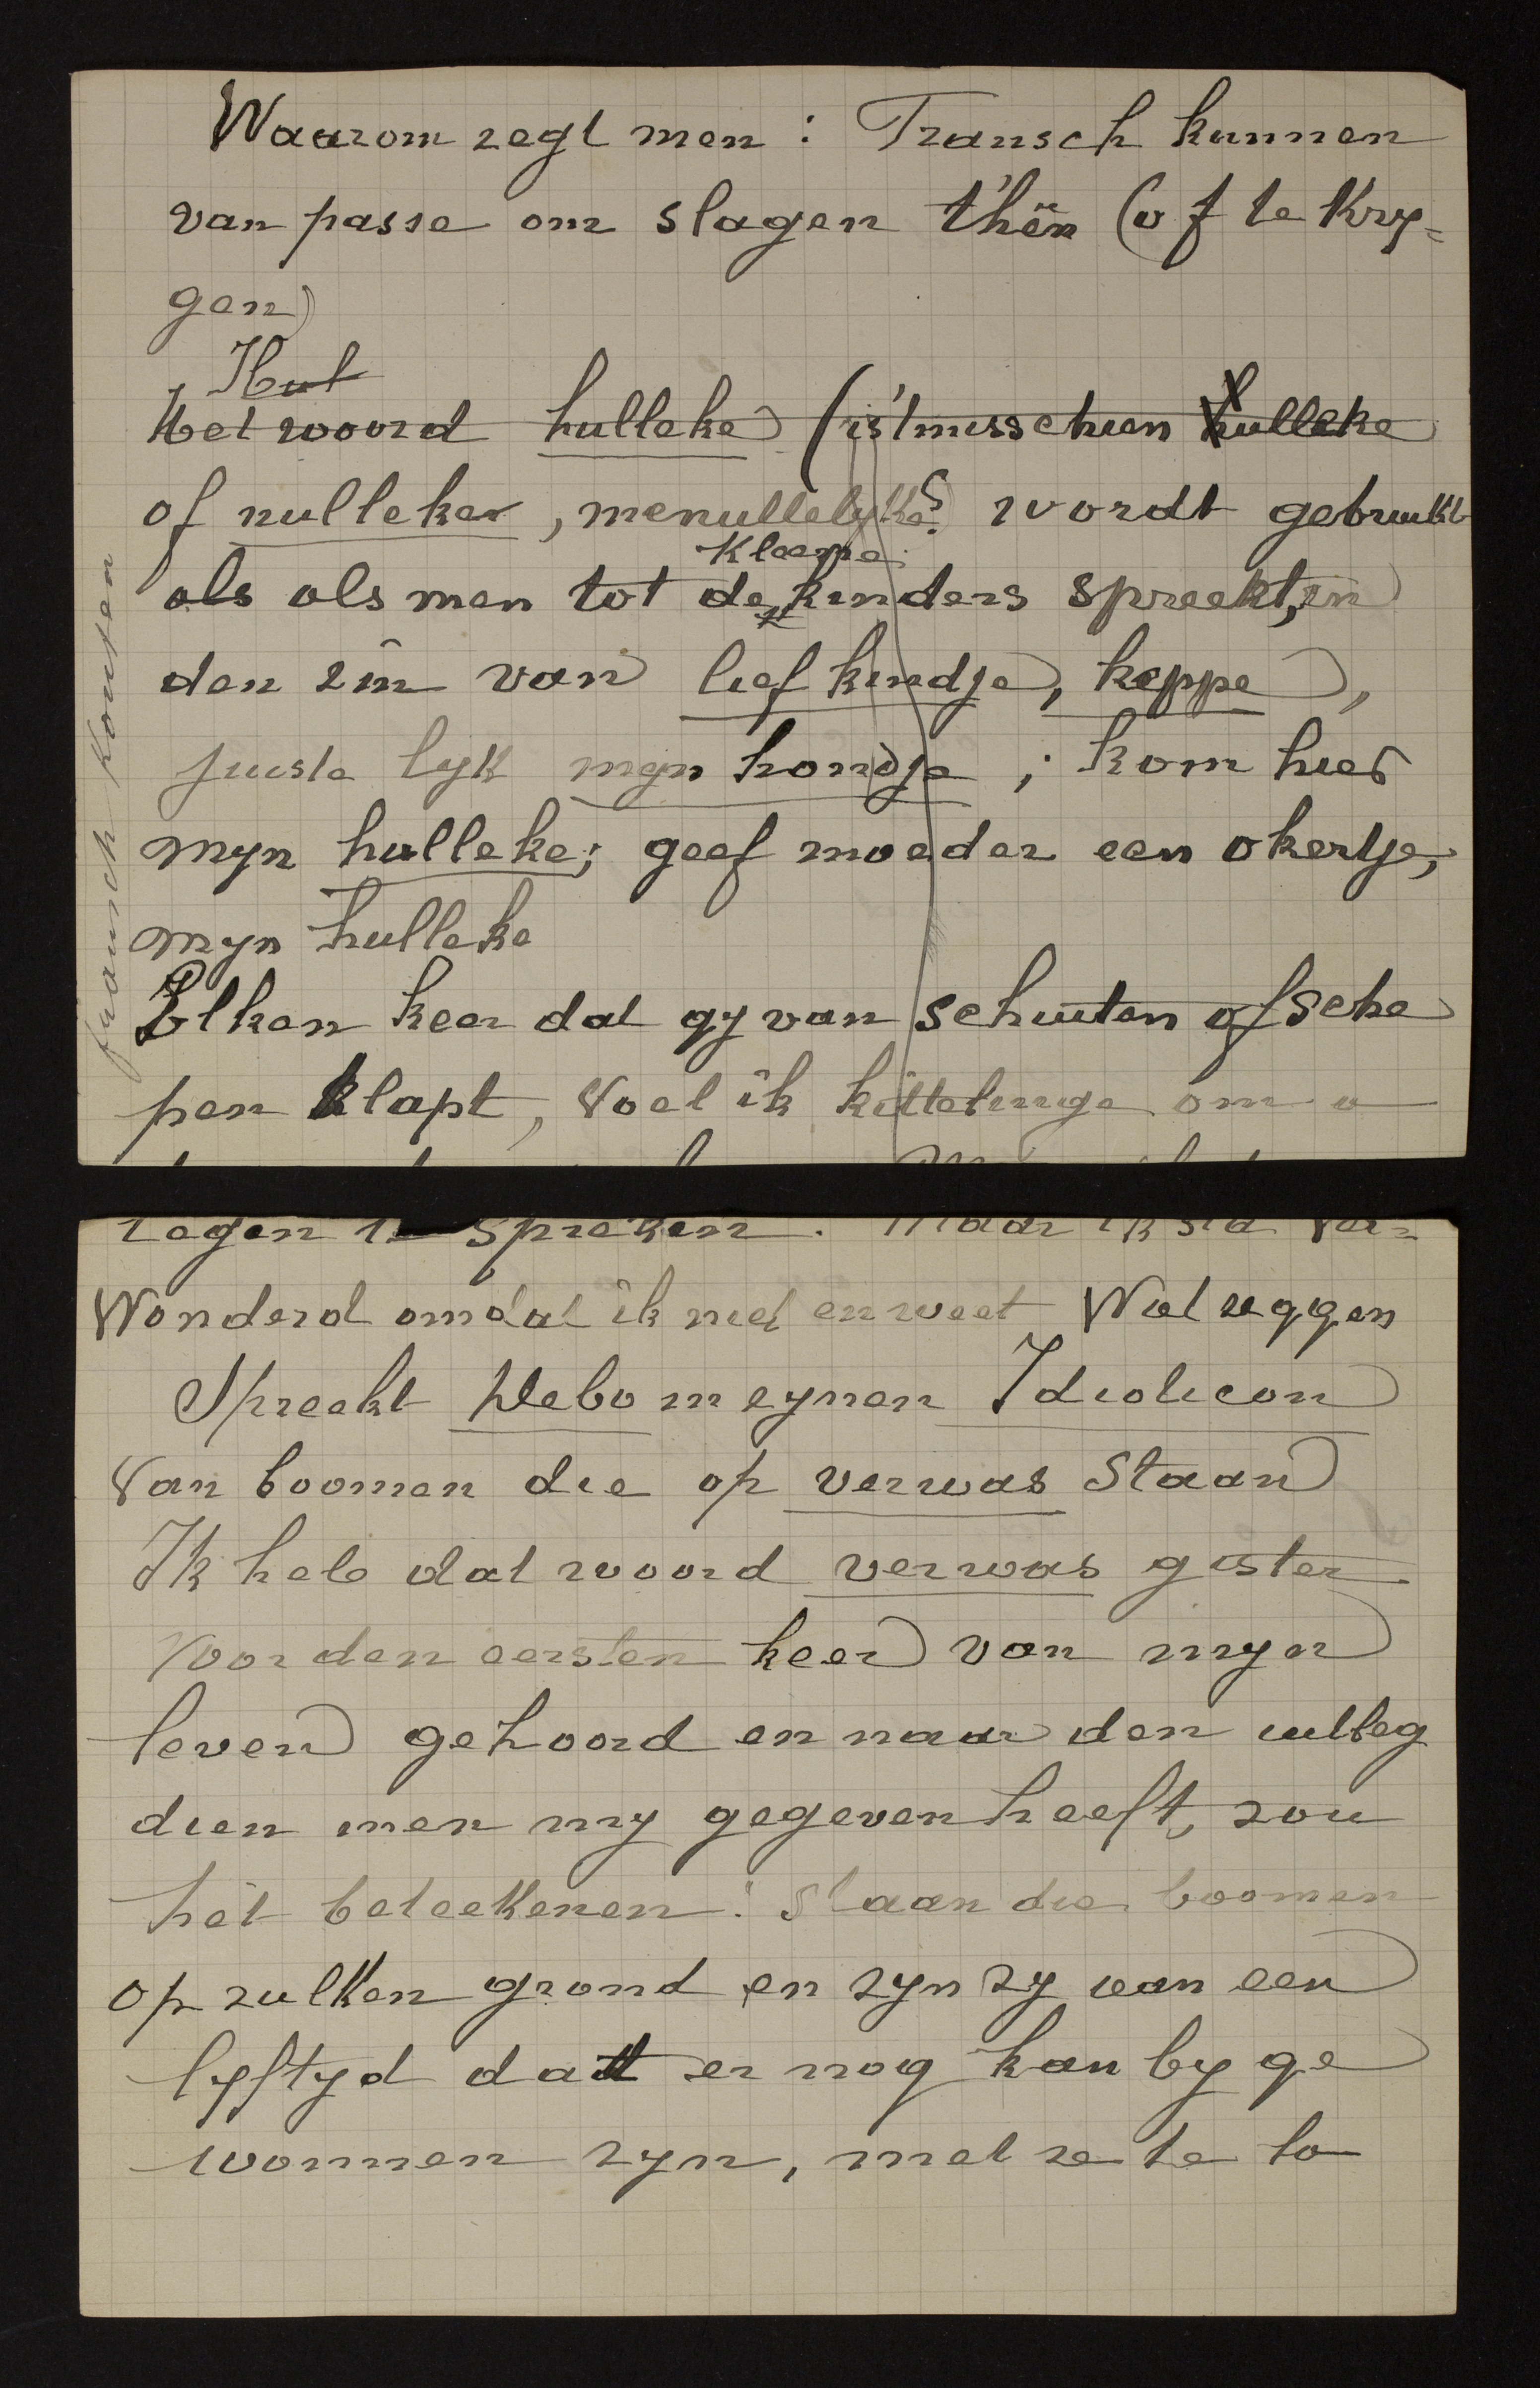 Waarom zegt men : Fransch kunnen
van passe om slagen t'hên (of te kry=
gen)
Hul
Het woord hulleke (is 't misschien hulleke
of nulleke, menullelyke? wordt gebruikt
kleene
als als men tot de kinders spreekt, in
den zin van lief kindje, keppe,
juiste lyk myn hondje ; kom hier
myn hulleke; geef moeder een okertje,
myn hulleke
Elken keer dat gy van schuiten of sche
pen klapt, voel ik kittelinge om u
tegen te spreken. Maar ik sta ver=
wonderd omdat ik niet en weet Wat zeggen
Spreekt Debo in zynen Idioticon
Van boomen die op verwas staan
Ik heb dat woord verwas gister
voor den eersten keer van myn
leven gehoord en naar den uitleg
dien men my gegeven heeft, zou
het beteekenen : staan die boomen
op zulken grond en zyn zy van een
lyftyd dat er nog kan by ge
wonnen zyn, met ze te la
fransch konsten